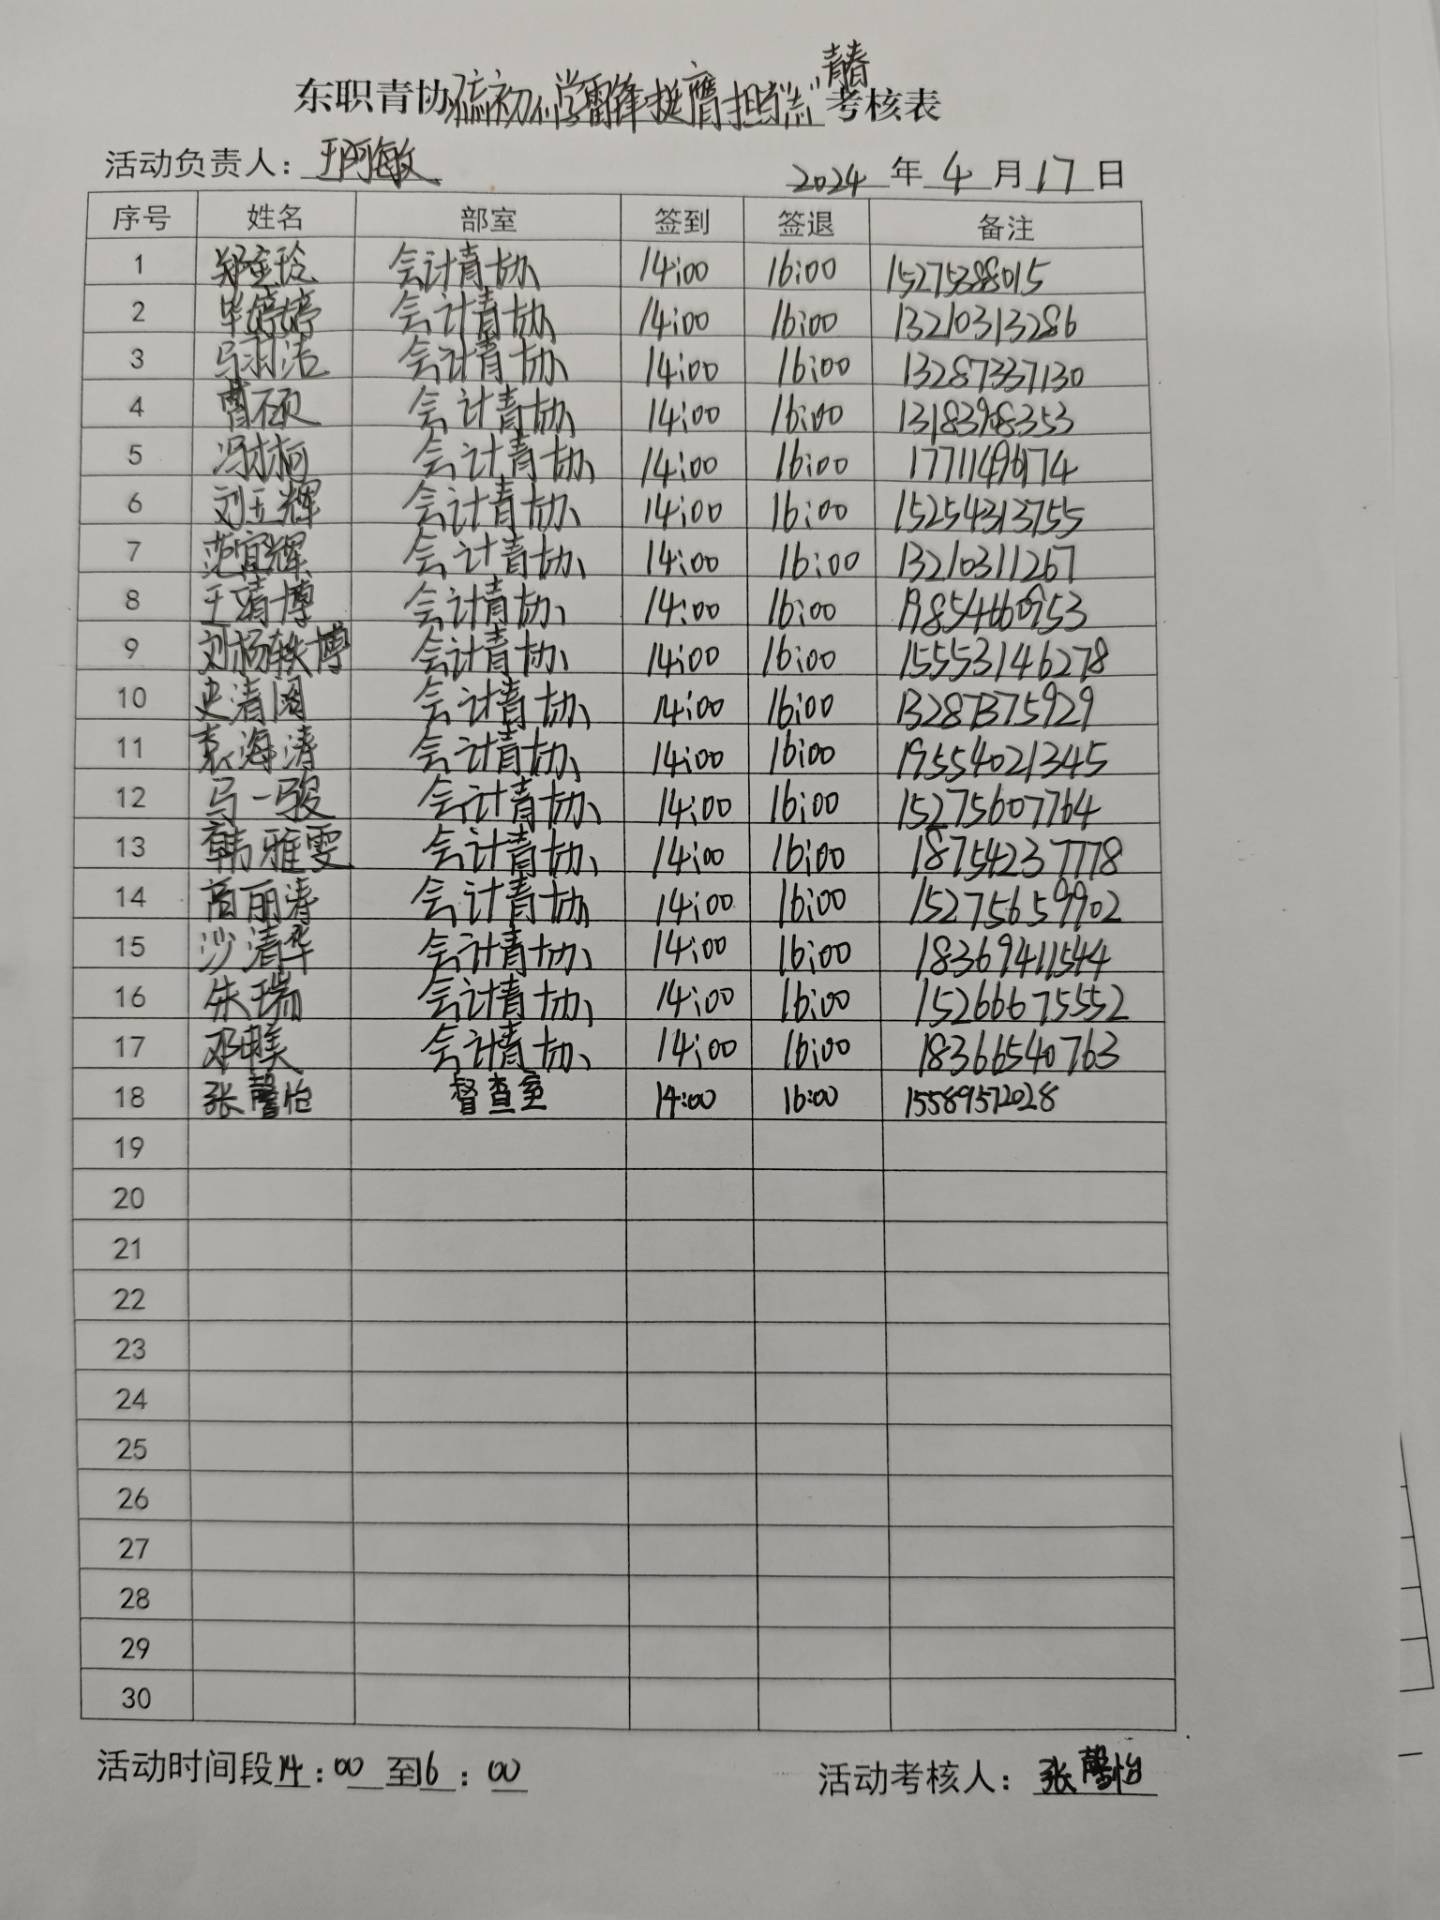 青春
东职青协 初心学雷锋 挺膺担当"志" 考核表
活动负责人：王阿敏
2024 年 4 月 17 日
序号 姓名 部室 签到 签退 备注
1 郑金玲 会计青协 14:00 16:00 15275388015
2 毕婷婷 会计青协 14:00 16:00 13210313286
3 马羽洁 会计青协 14:00 16:00 13287337130
4 曹硕 会计青协 14:00 16:00 13183908353
5 会计青协 14:00 16:00 17711496174
6 刘玉辉 会计青协 14:00 16:00 15254313755
7 范宜辉 会计青协 14:00 16:00 13210311267
8 王靖博 会计青协 14:00 16:00 19854660953
9 刘杨轶博 会计青协 14:00 16:00 15553146278
10 史清阁 会计青协 14:00 16:00 13287375929
11 袁海涛 会计青协 14:00 16:00 19554021345
12 马一骏 会计青协 14:00 16:00 15275607764
13 韩雅雯 会计青协 14:00 16:00 18754237778
14 商丽涛 会计青协 14:00 16:00 15275659902
15 沙清华 会计青协 14:00 16:00 18369411544
16 朱瑞 会计青协 14:00 16:00 15266675552
17 邓申美 会计青协 14:00 16:00 18366540763
18 张馨怡 督查室 14:00 16:00 15589572028
19
20
21
22
23
24
25
26
27
28
29
30
活动时间段 14:00 至 16:00 活动考核人：张馨怡